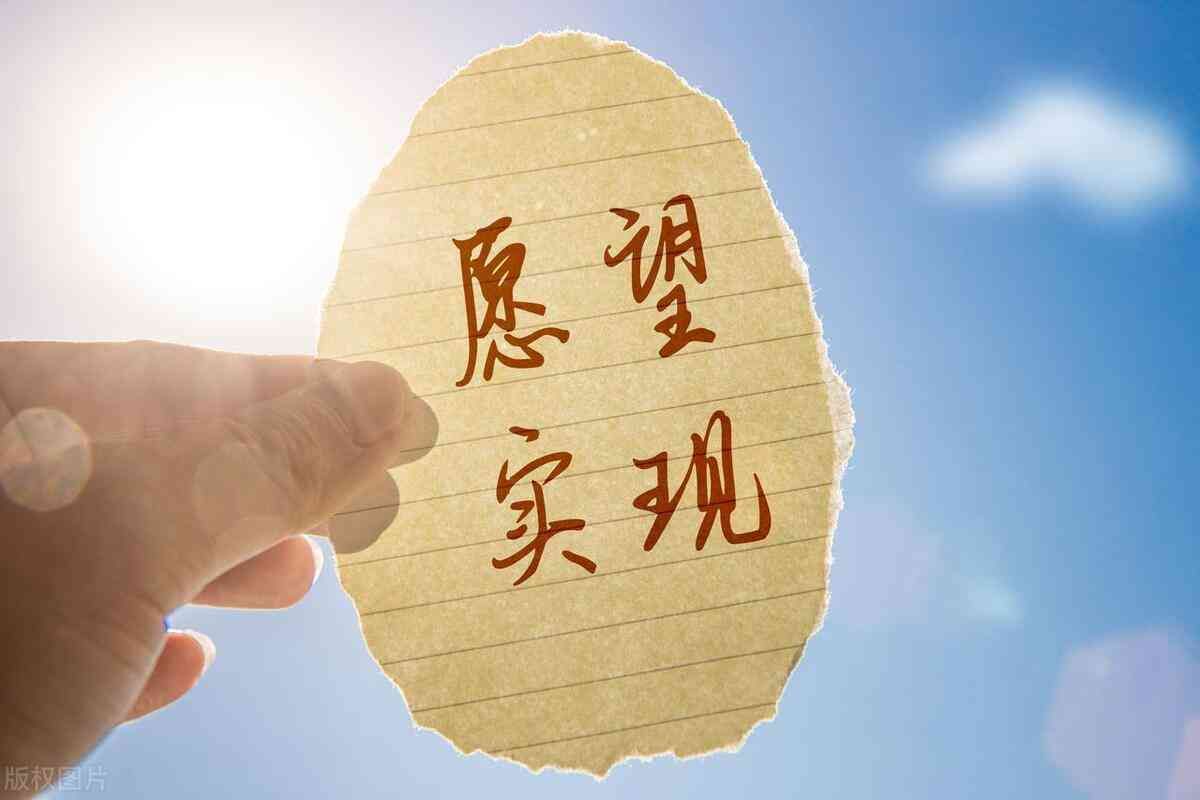 愿望
实现
版权图片